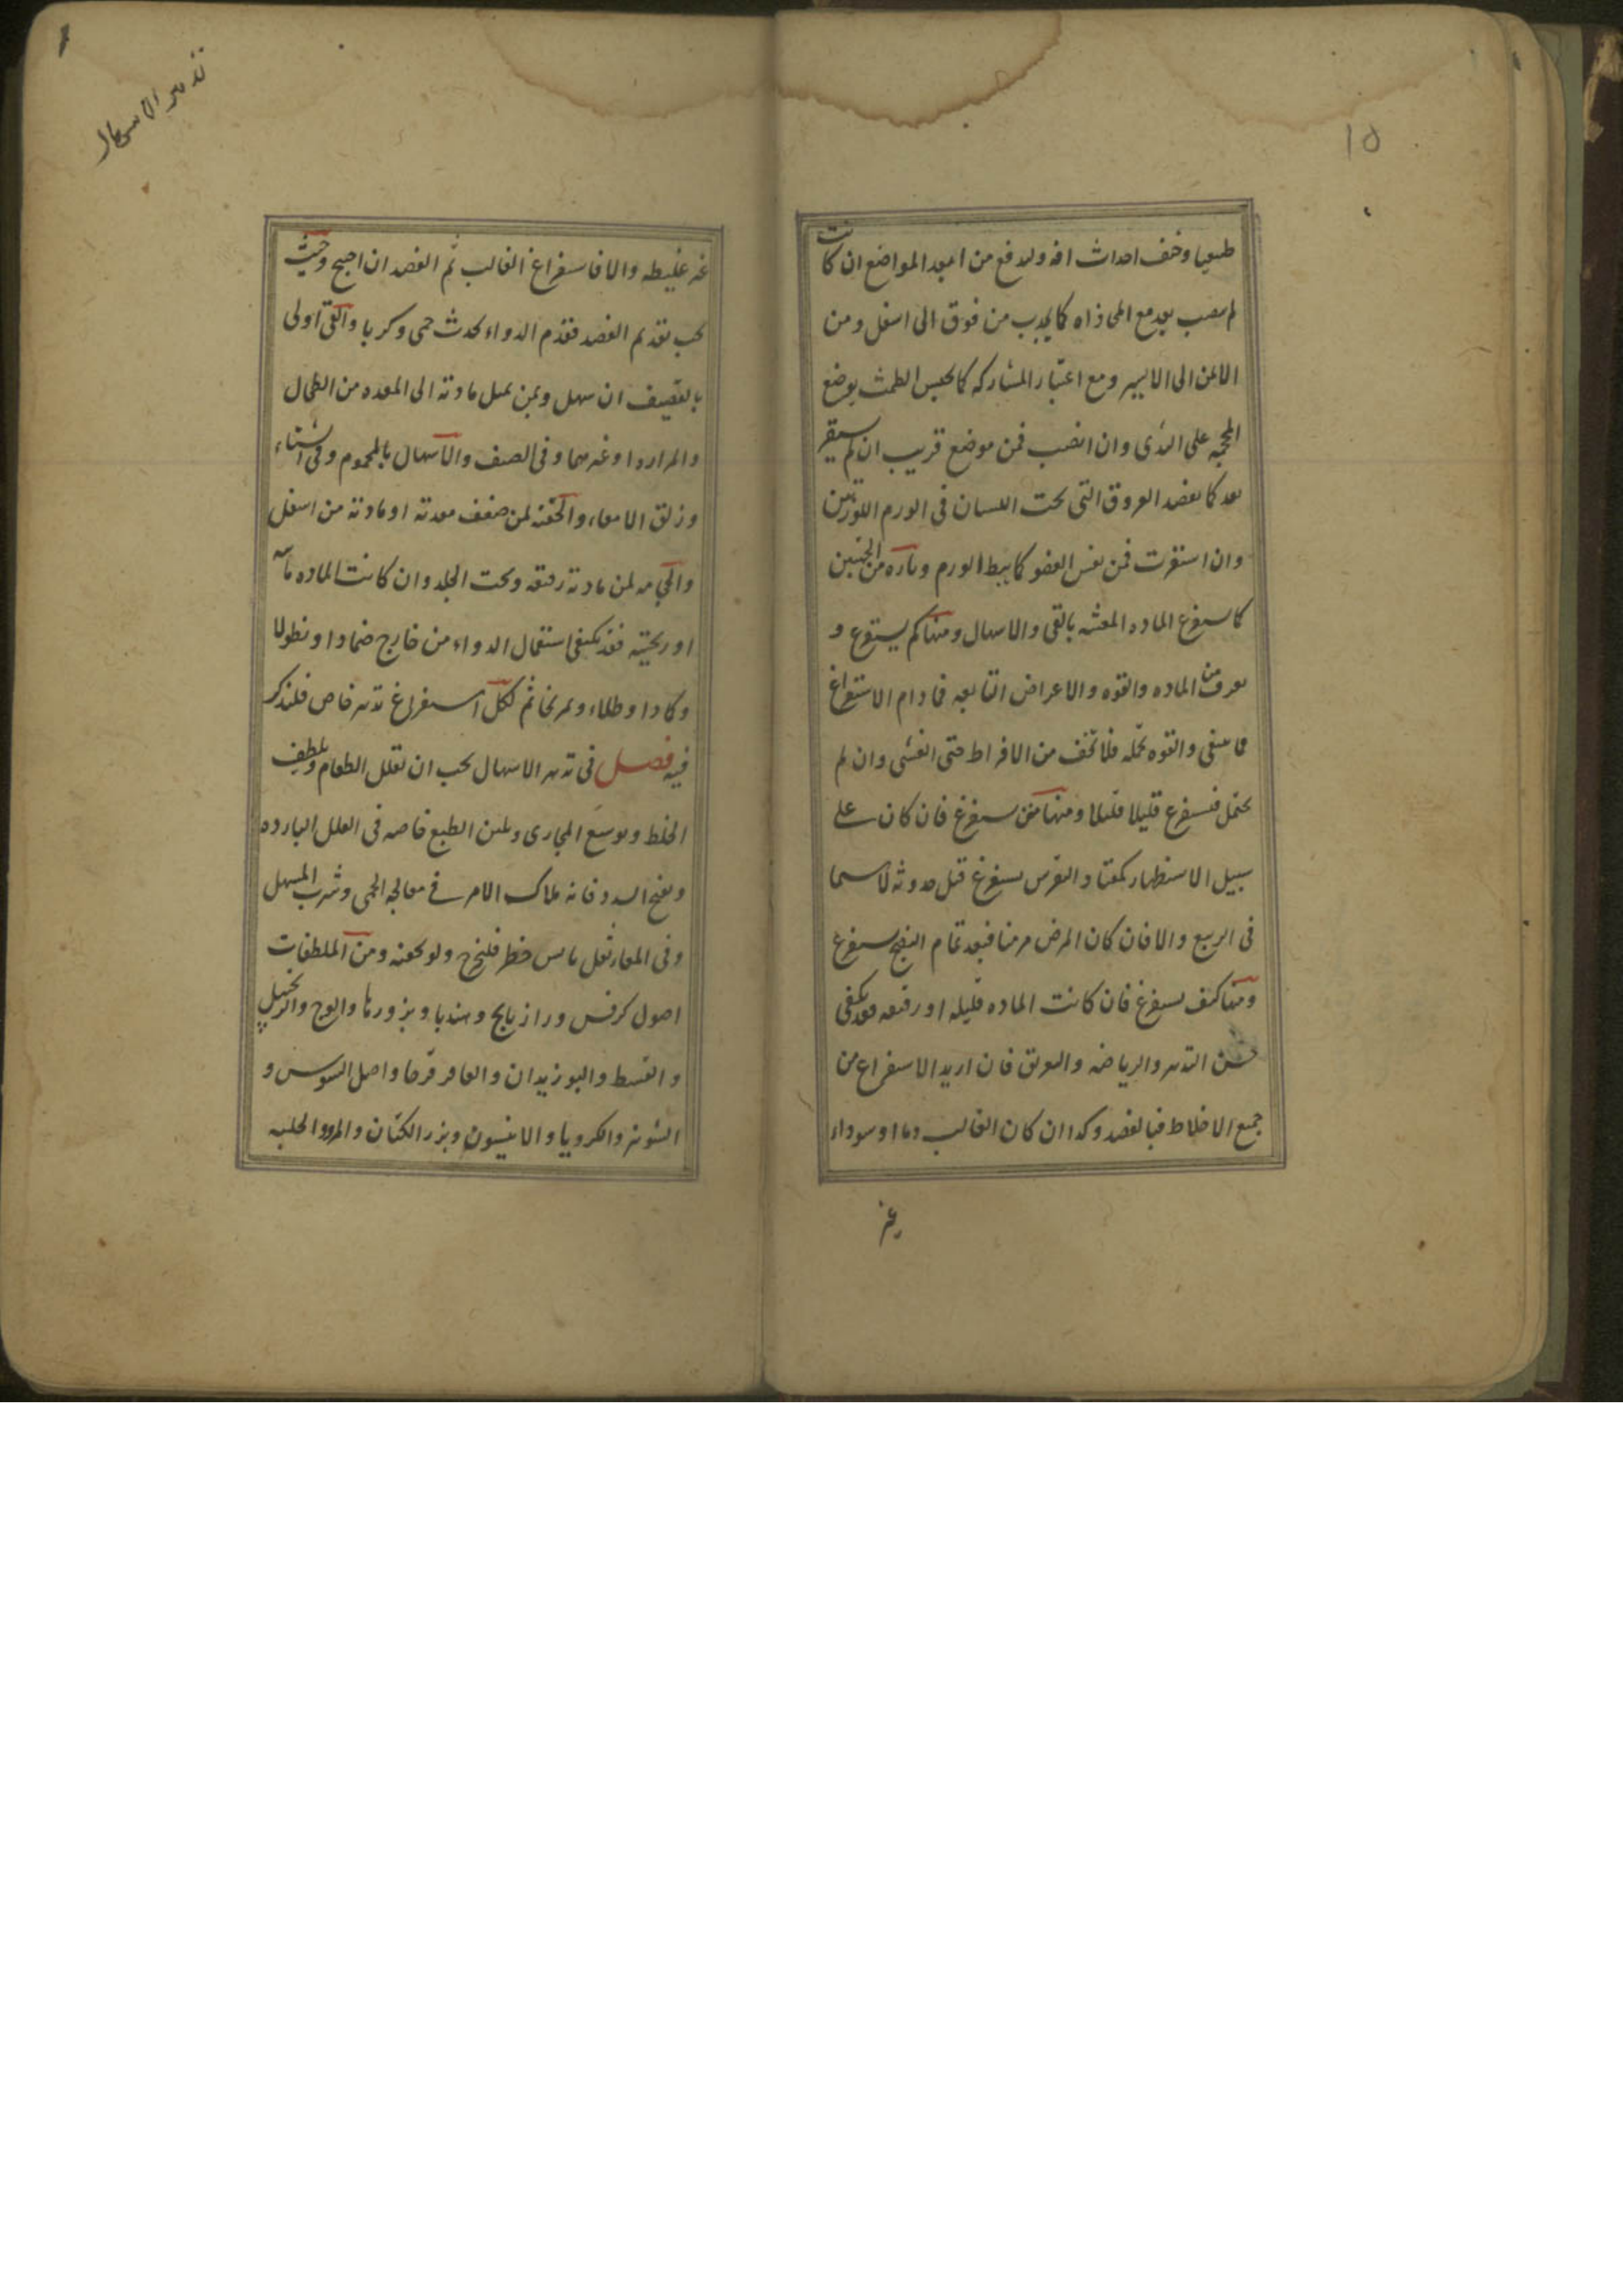 ١٥
طبيعيا وخيف احداث افه ولادفع من ابعد المواضع ان كانت
لم تنصب بعد مع المحاذاه كما يجذب من فوق الى اسفل ومن
الايمن الى الايسر ومع اعتبار المشاركه كما يحبس الطمث بوضع
المحجمه على الثدى وان انصب فمن موضع قريب ان لم يستقر
بعد كما يفصد العروق التى تحت اللسان فى الورم اللوزتين
وان استقرت فمن نفس العضو كما يبط الورم وتارة من الجنبين
كما يستفرغ الماده المغثيه بالقى والاسهال ومنها كم يستفرغ و
يعرف من الماده والقوه والاعراض التابعه فما دام الاستفراغ
مما ينبغى والقوه تحتمله فلا تخف من الافراط حتى الغشى وان لم
تحتمل فيستفرغ قليلا قليلا ومنها متى يستفرغ فان كان على
سبيل الاستظهار كمعتاد النقرس يستفرغ قبل حدوثه لاسيما
فى الربيع والا فان كان المرض مزمنا فبعد تمام النضج يستفرغ
ومنها كيف يستفرغ فان كانت الماده قليله او رقيقه فقد يكفى
حسن التدبير والرياضه والتعريق فان اريد الاستفراغ من
جميع الاخلاط فبالفصد وكذا ان كان الغالب دما او سوداء
غير
تدبير الاسهال
غير غليظه والا فاستفراغ الغالب ثم الفصد ان احتيج وحيث
يجب تقديم الفصد فقدم الدواء يحدث حمى وكربا والقى اولى
بالقضيف ان سهل وبمن يميل مادته الى المعده من الطحال
والمراره او غيرهما وفى الصيف والاسهال بالمحموم وفى الشتاء
وزلق الامعاء والحقنه لمن ضعف معدته او مادته من اسفل
والحجامه لمن مادته رقيقه وتحت الجلد وان كانت الماده مائيه
او ريحيه فقد يكفى استعمال الدواء من خارج ضمادا او نطولا
وكمادا وطلاء وتمريخا ثم لكل استفراغ تدبير خاص فلنذكر
فيه فصل فى تدبير الاسهال يجب ان تقلل الطعام وتلطيف
الخلط وتوسيع المجارى وتلين الطبع خاصه فى العلل البارده
وتفتح السدد فانه ملاك الامر فى معالجه الحمى وشرب المسهل
وفى المعا ثفل يابس خطر فليخرج ولو بحقنه ومن الملطفات
اصول كرفس ورازيانج وهندبا وبزورها والوج والزنجبيل
والقسط والبوزيدان والعاقرقرحا واصل السوس و
الشونيز والكرويا والانيسون وبزر الكتان والمرو والحلبه